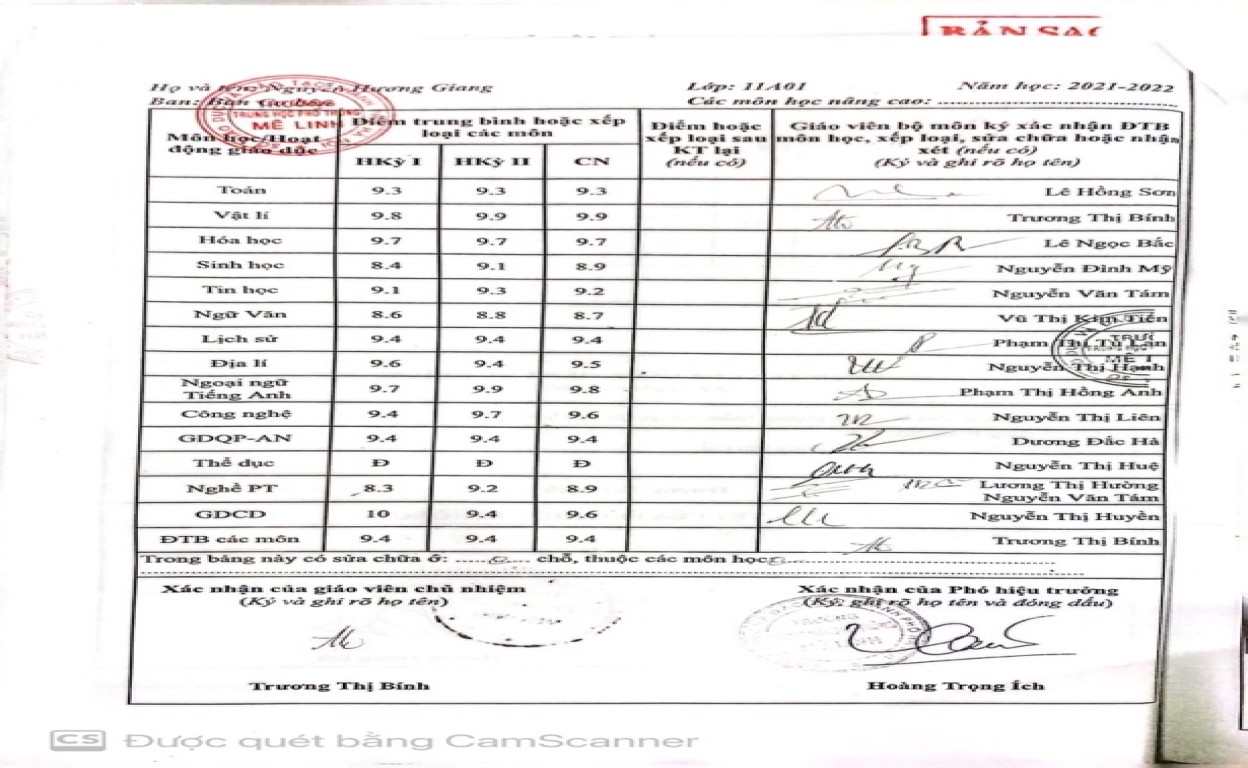 BẢN SAO
Họ và tên: Nguyễn Hương Giang Lớp: 11A01 Năm học: 2021-2022
Ban: Các môn học nâng cao: ........................................
Môn học/Hoạt động giáo dục Điểm trung bình hoặc xếp loại các môn Điểm hoặc xếp loại sau KT lại (nếu có) Giáo viên bộ môn ký xác nhận ĐTB môn học, xếp loại, sửa chữa hoặc nhận xét (nếu có) (Ký và ghi rõ họ tên)
HKỳ I HKỳ II CN
TRUNG HỌC PHỔ THÔNG
MÊ LINH
Toán 9.3 9.3 9.3 Lê Hồng Sơn
Vật lí 9.8 9.9 9.9 Trương Thị Bính
Hóa học 9.7 9.7 9.7 Lê Ngọc Bắc
Sinh học 8.4 9.1 8.9 Nguyễn Đình Mỹ
Tin học 9.1 9.3 9.2 Nguyễn Văn Tám
Ngữ Văn 8.6 8.8 8.7 Vũ Thị Kim Tiến
Lịch sử 9.4 9.4 9.4 Phạm Thị Tú Lan
Địa lí 9.6 9.4 9.5 Nguyễn Thị Hạnh
Ngoại ngữ Tiếng Anh 9.7 9.9 9.8 Phạm Thị Hồng Anh
Công nghệ 9.4 9.7 9.6 Nguyễn Thị Liên
GDQP-AN 9.4 9.4 9.4 Dương Đắc Hà
Thể dục Đ Đ Đ Nguyễn Thị Huệ
Nghề PT 8.3 9.2 8.9 Lương Thị Hường
Nguyễn Văn Tám
GDCD 10 9.4 9.6 Nguyễn Thị Huyền
ĐTB các môn 9.4 9.4 9.4 Trương Thị Bính
Trong bảng này có sửa chữa ở: ......0..... chỗ, thuộc các môn học:
Xác nhận của giáo viên chủ nhiệm Xác nhận của Phó hiệu trưởng
(Ký và ghi rõ họ tên) (Ký, ghi rõ họ tên và đóng dấu)
Trương Thị Bính Hoàng Trọng Ích
CS Được quét bằng CamScanner